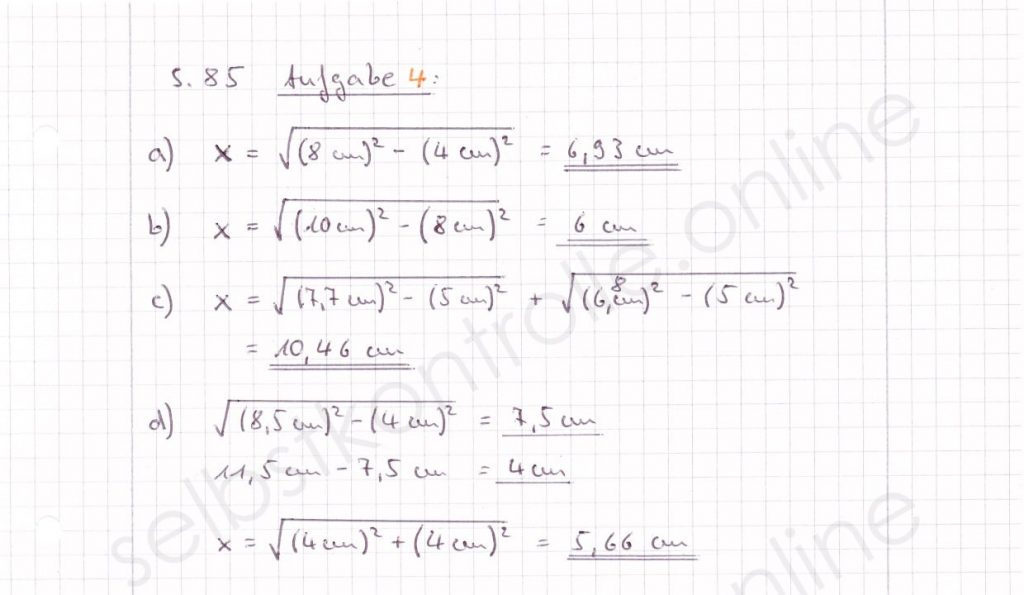 S. 85 Aufgabe 4:
a) x = √((8 cm)² - (4 cm)²) = 6,93 cm
b) x = √((10 cm)² - (8 cm)²) = 6 cm
c) x = √((7,7 cm)² - (5 cm)²) + √((6,8 cm)² - (5 cm)²)
= 10,46 cm
d) √((8,5 cm)² - (4 cm)²) = 7,5 cm
11,5 cm - 7,5 cm = 4 cm
x = √((4 cm)² + (4 cm)²) = 5,66 cm
selbstkontrolle.online
online